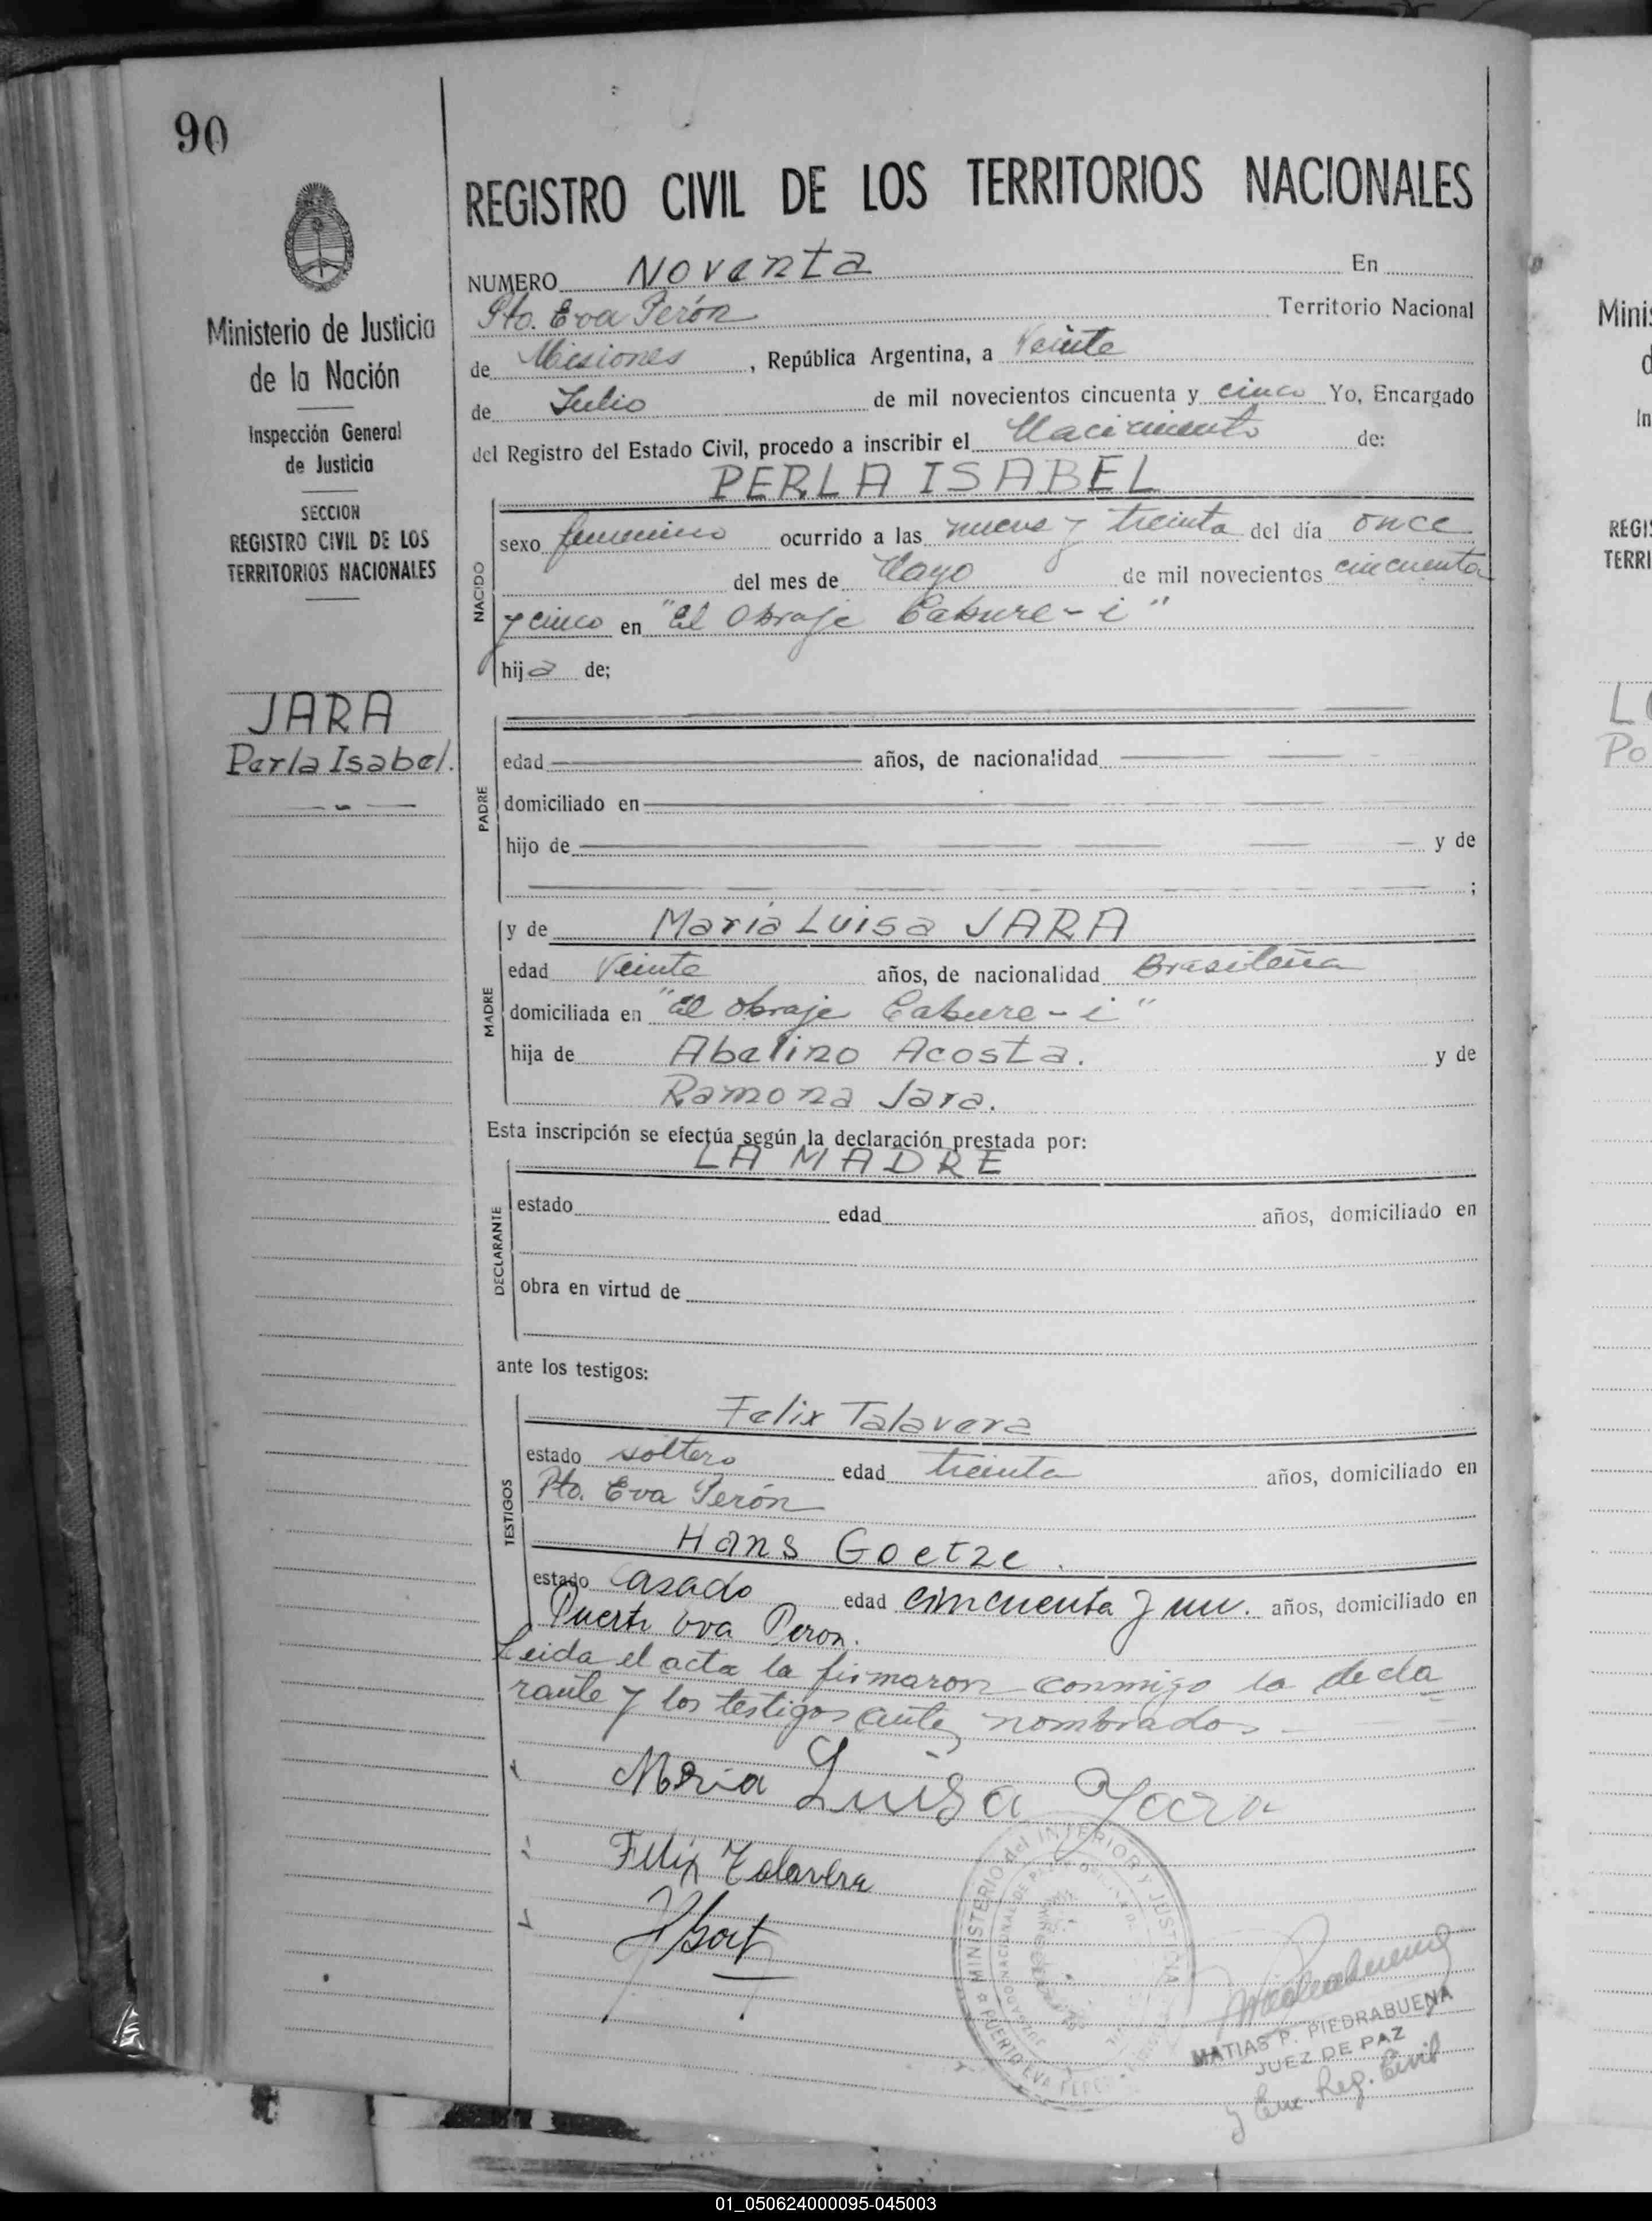 90
Ministerio de Justicia
de la Nación
Inspección General
de Justicia
SECCION
REGISTRO CIVIL DE LOS
TERRITORIOS NACIONALES
JARA
Perla Isabel.
REGISTRO CIVIL DE LOS TERRITORIOS NACIONALES
NUMERO Noventa En
Pto. Eva Perón Territorio Nacional
de Misiones, República Argentina, a Veinte
de Julio de mil novecientos cincuenta y cinco Yo, Encargado
del Registro del Estado Civil, procedo a inscribir el Nacimiento de:
PERLA ISABEL
NACIDO
sexo femenino ocurrido a las nueve y treinta del día once
del mes de Mayo de mil novecientos cincuenta
y cinco en "El Obraje Cabure-i"
hija de;
PADRE
edad años, de nacionalidad
domiciliado en
hijo de y de
;
MADRE
y de Maria Luisa JARA
edad Veinte años, de nacionalidad Brasileña
domiciliada en "El obraje Cabure-i"
hija de Abelino Acosta. y de
Ramona Jara.
Esta inscripción se efectúa según la declaración prestada por:
LA MADRE
DECLARANTE
estado edad años, domiciliado en
obra en virtud de
ante los testigos:
TESTIGOS
Felix Talavera
estado soltero edad treinta años, domiciliado en
Pto. Eva Perón
Hans Goetze.
estado Casado edad cincuenta y un. años, domiciliado en
Puerto Eva Peron.
Leida el acta la firmaron conmigo la decla
rante y los testigos antes nombrados
Maria Luisa Yara
Felix Talavera
MINISTERIO del INTERIOR Y JUSTICIA
PUERTO EVA PERON
MATIAS P. PIEDRABUENA
JUEZ DE PAZ
y Enc. Reg. Civil
Minis
d
In
REGIS
TERRI
Po
01_050624000095-045003